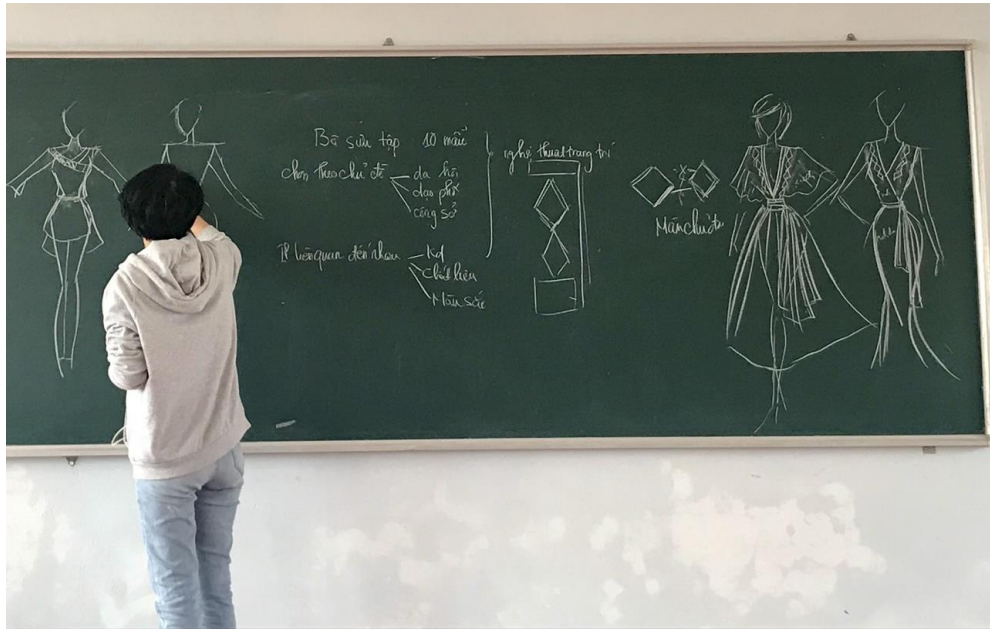 Bộ sưu tập 10 mẫu
chọn theo chủ đề
dạ hội
dạo phố
công sở
liên quan đến nhau
Chất liệu
Màu sắc
nghệ thuật trang trí
Màu chủ đạo